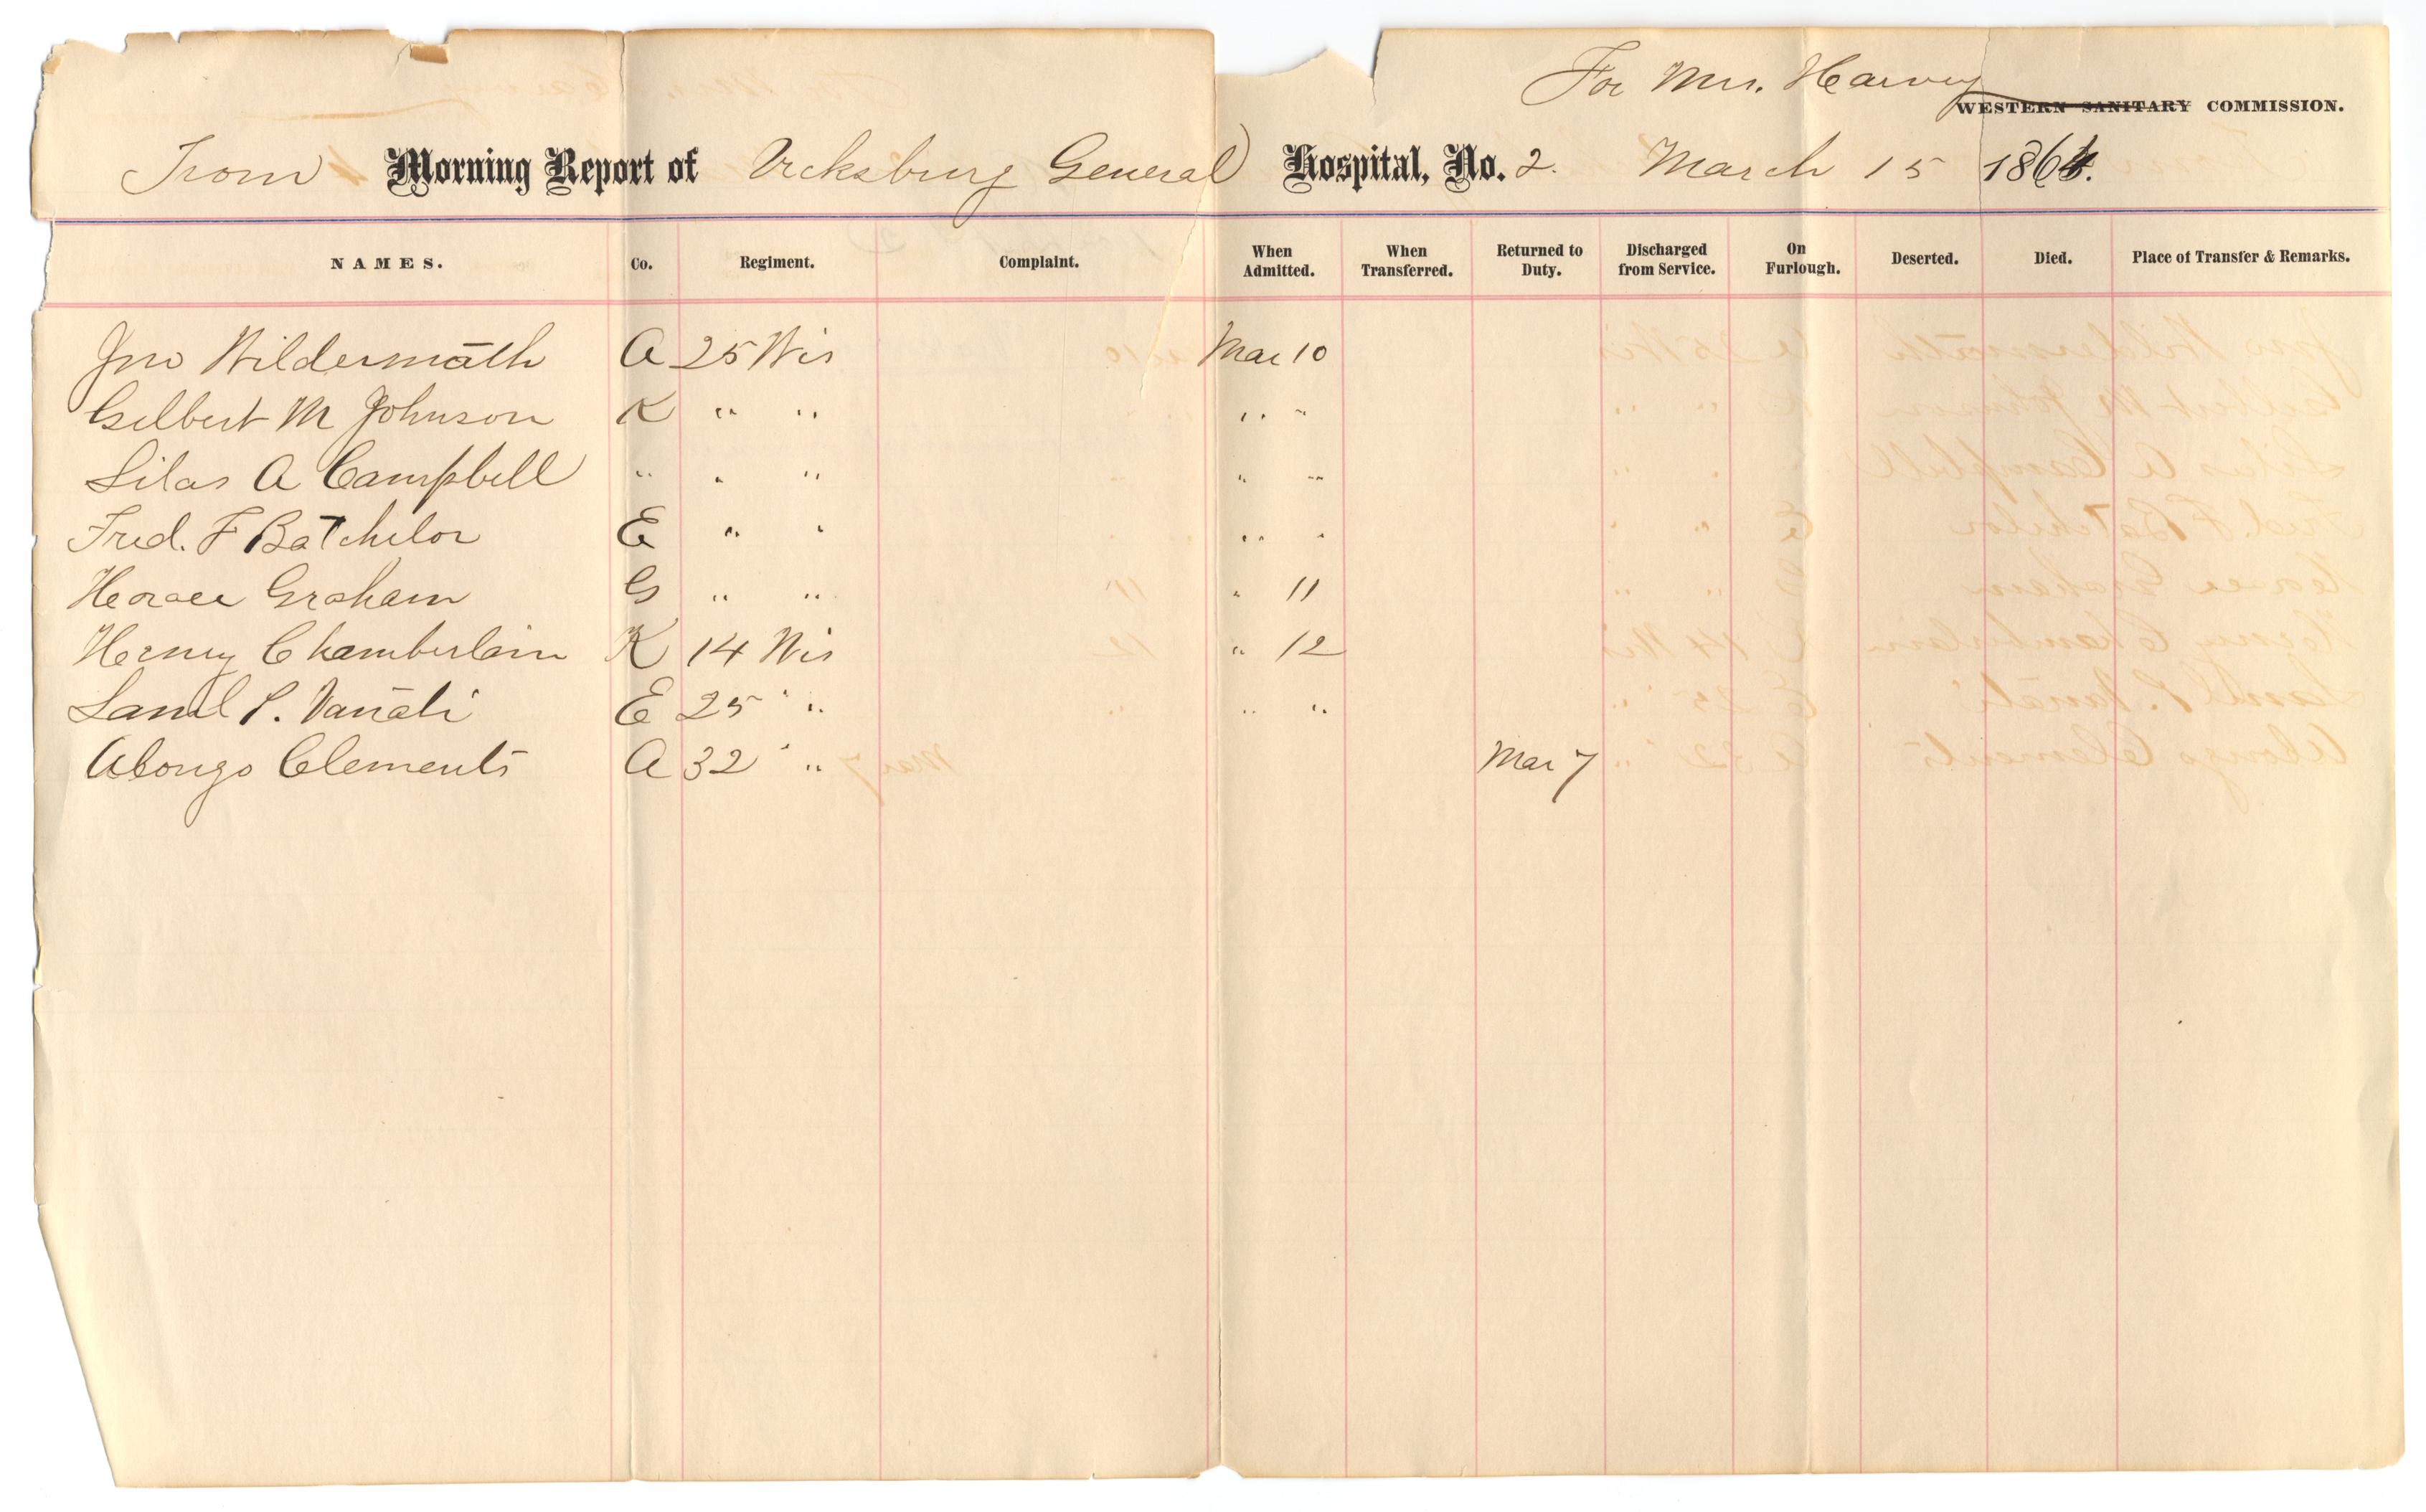 For Mrs. Harvey
WESTERN SANITARY COMMISSION.
From Morning Report of Vicksburg General Hospital, No. 2. March 15 1864.
NAMES. Co. Regiment. Complaint. When Admitted. When Transferred. Returned to Duty. Discharged from Service. On Furlough. Deserted. Died. Place of Transfer & Remarks.
Jno Wildermath A 25 Wis Mar 10
Gilbert M Johnson K " " " "
Silas A Campbell " " " " "
Fred. F Batchelor E " " " "
Horace Graham G " " " 11
Henry Chamberlain K 14 Wis " 12
Saml P. E 25 " " " "
Alonzo Clements A 32 " " Mar 7